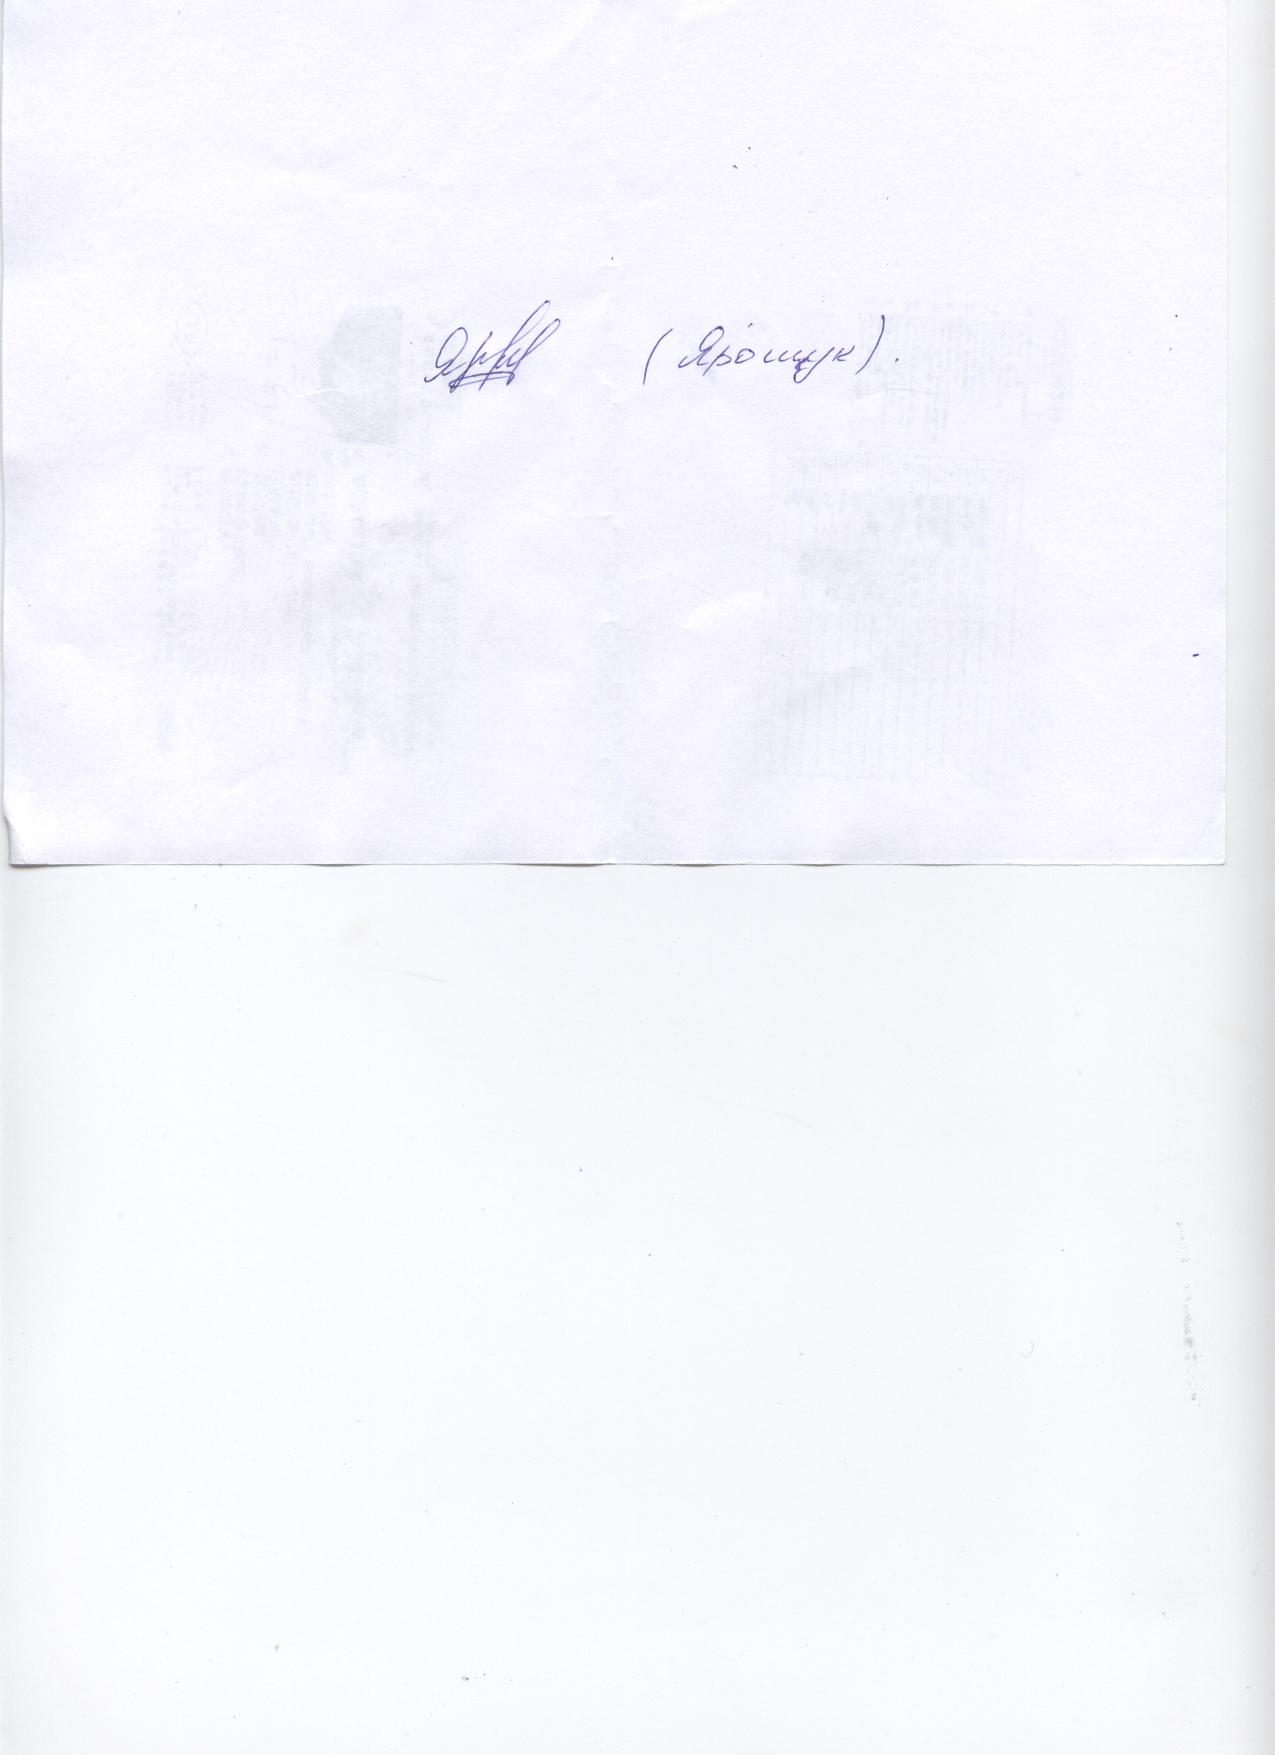 (Ярощук).